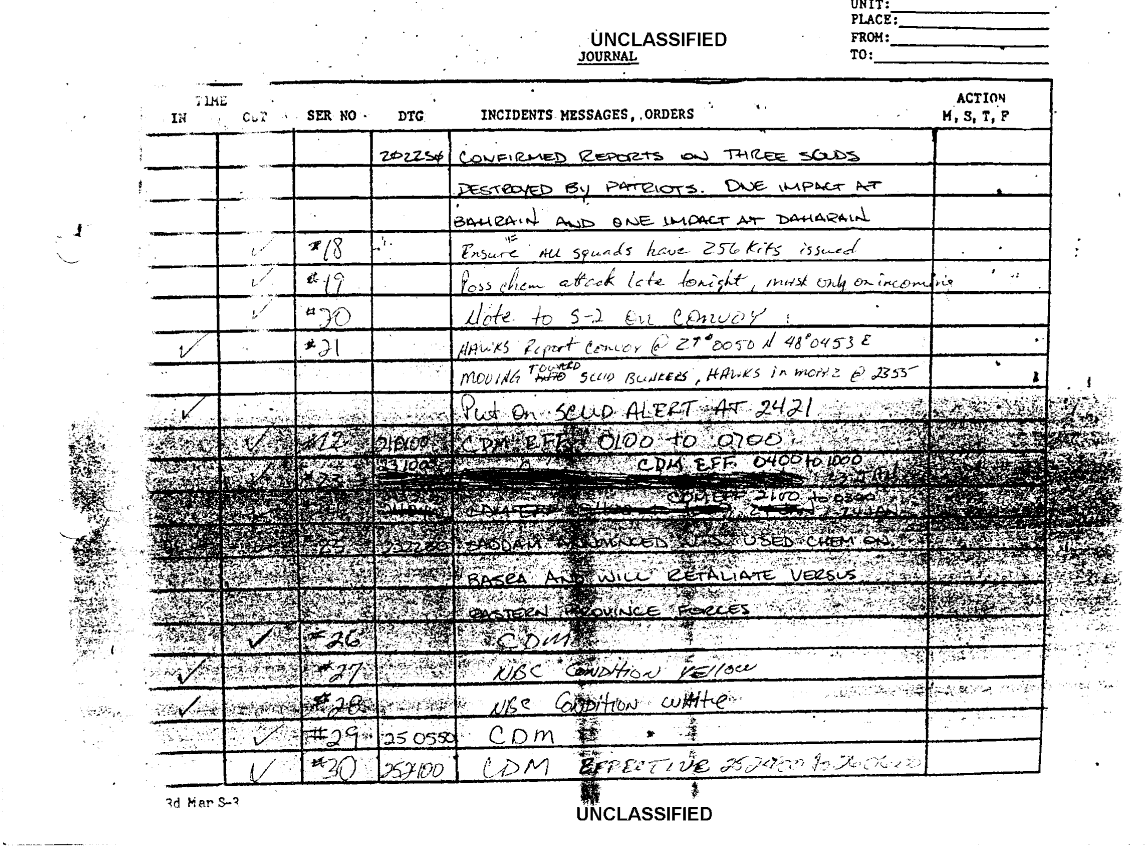 UNIT:
PLACE:
FROM:
TO:
UNCLASSIFIED
JOURNAL
TIME
IN OUT SER NO DTG INCIDENTS MESSAGES, ORDERS ACTION M, S, T, F
CONFIRMED REPORTS ON THREE SCUDS
DESTROYED BY PATRIOTS. ONE IMPACT AT
BAHRAIN AND ONE IMPACT AT DAHARAIN
#18 Ensure ALL squads have 256 Kits issued
#19 Poss chem attack late tonight, only on incoming
#20 Note to S-2 on CONVOY
#21 HAWKS Report Convoy @ 27°0050 N 48°0453 E
MOVING TOWARD SCUD BUNKERS, HAWKS in @ 2355
Put on SCUD ALERT AT 2421
CDM EFF. 0100 to 0700
CDM EFF. 0400 to 1000
CDM EFF 2100 to
SADDAM USED CHEM ON
BASRA AND WILL RETALIATE VERSUS
EASTERN PROVINCE FORCES
#26 CDM
#27 NBC Condition Yellow
#28 NBC Condition White
#29 250550 CDM
#30 252100 CDM EFFECTIVE
3d Mar S-3
UNCLASSIFIED